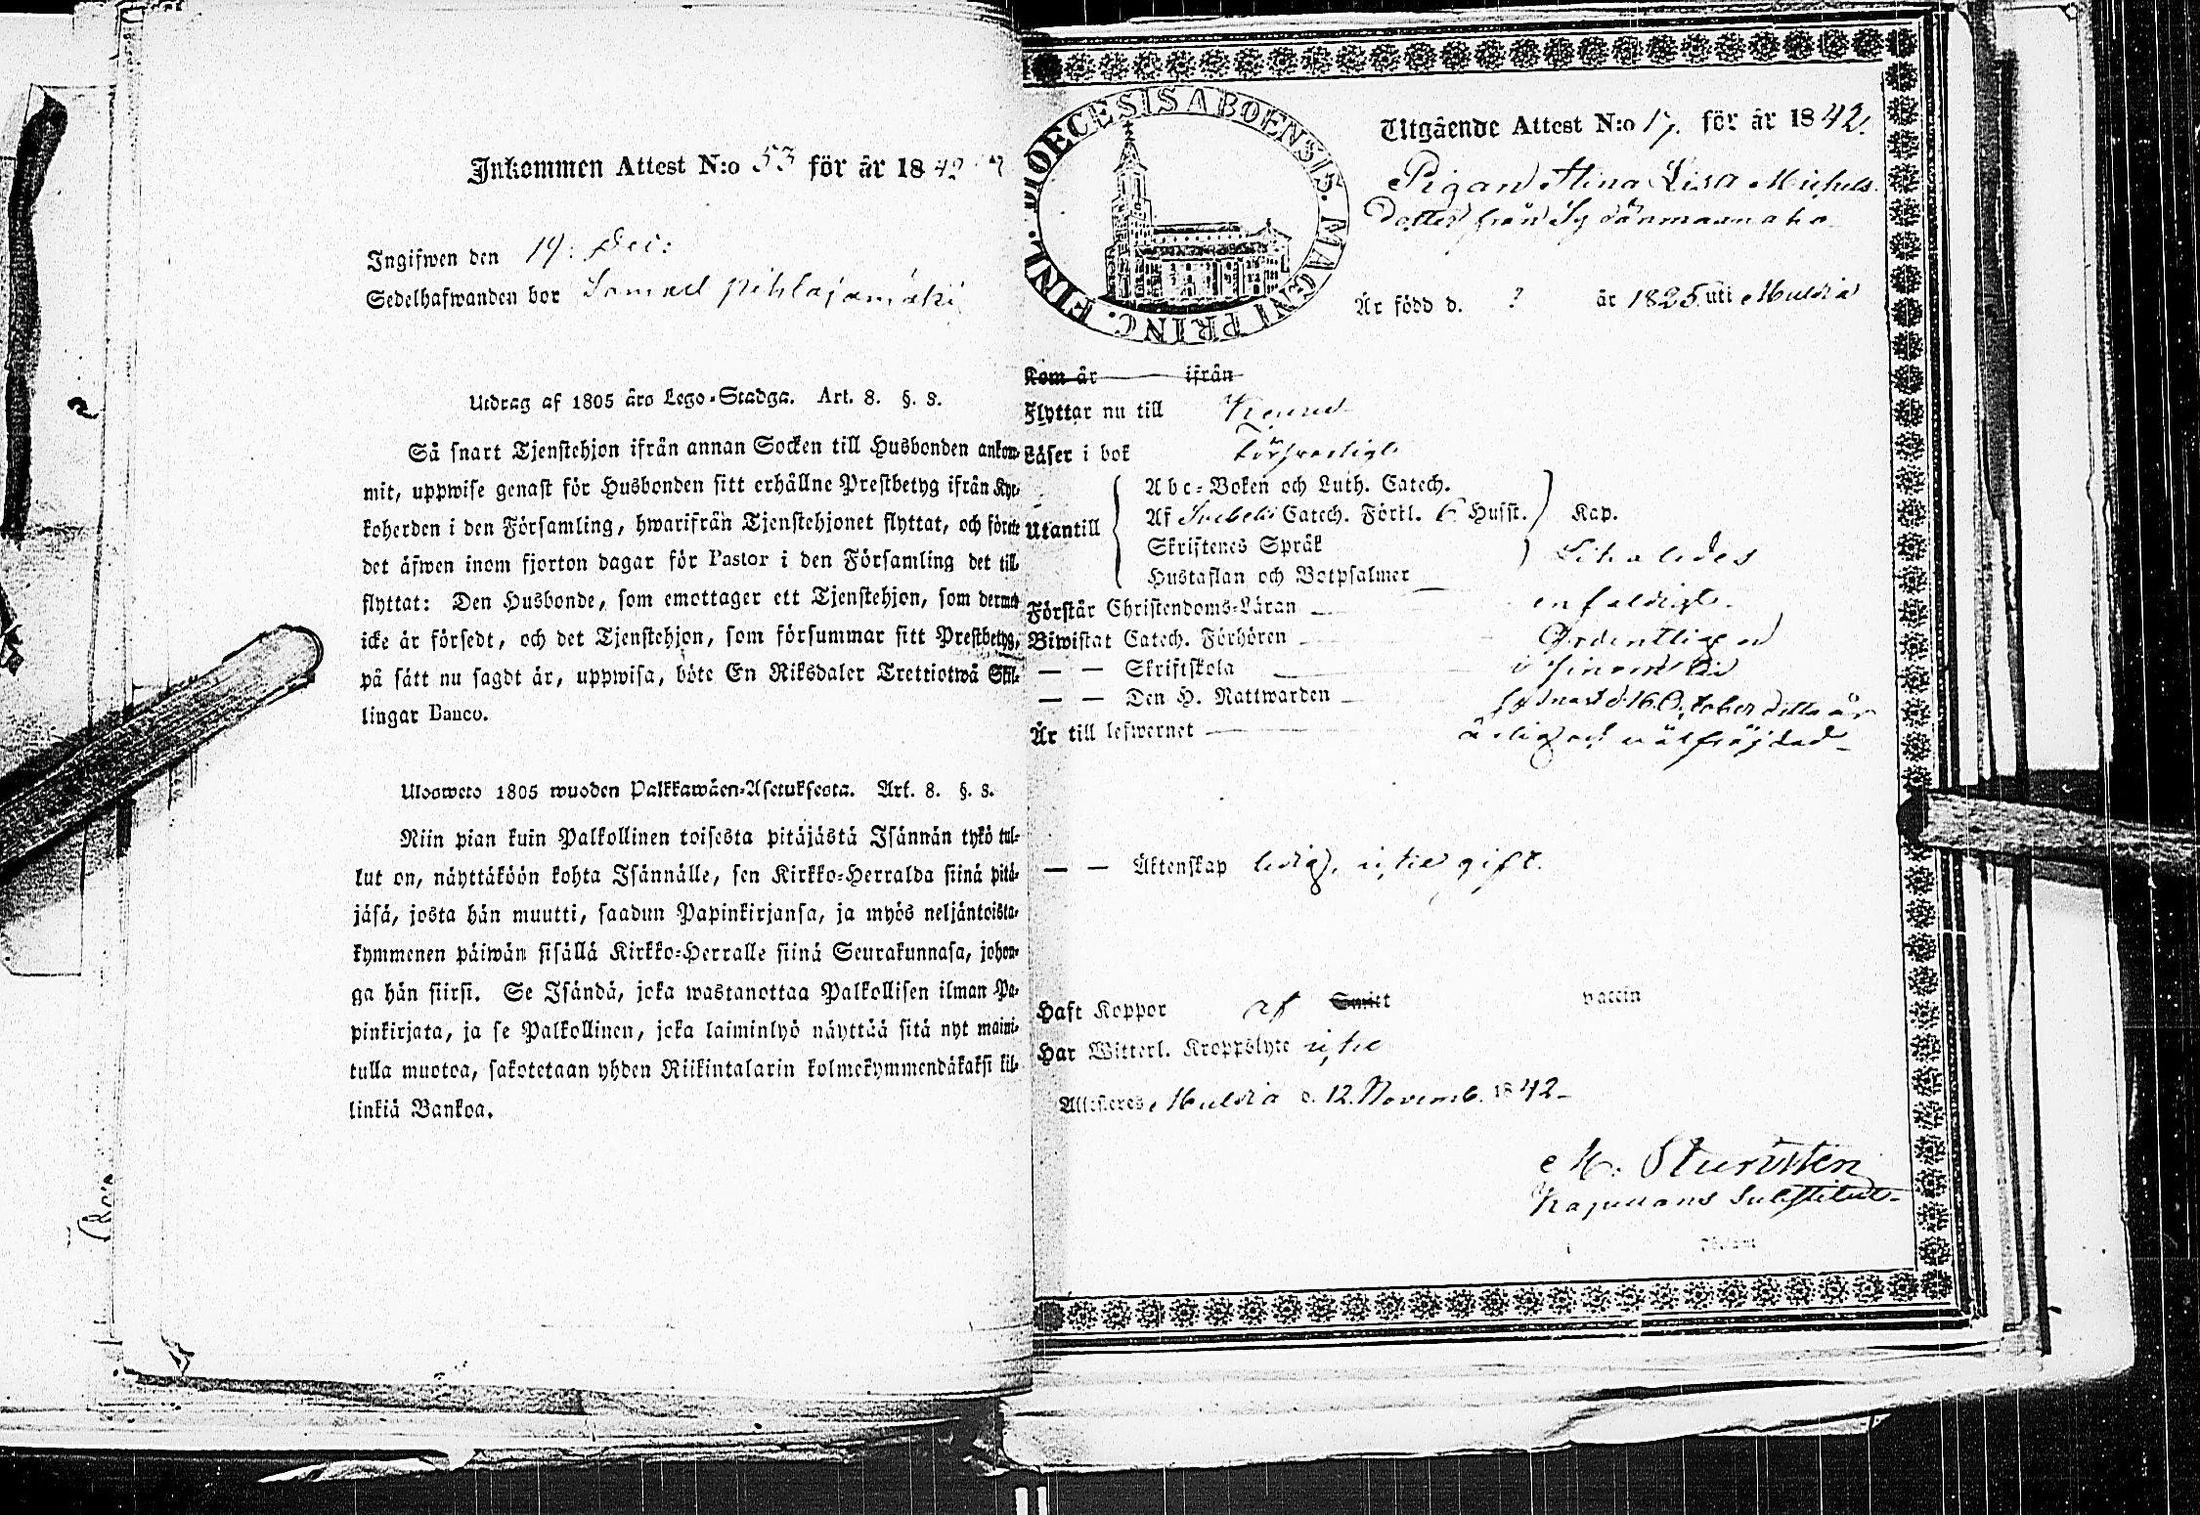 Inkommen Attest N:o 53 för år 1842
Ingifwen den 19: Dec:
Sedelhafwanden bor Samuel Pihlajamäki
Utdrag af 1805 års Lego-Stadga. Art. 8. §. 8.
Så snart Tjenstehjon ifrån annan Socken till Husbonden ankom-
mit, uppwise genast för Husbonden sitt erhållne Prestbetyg ifrån Kyr-
koherden i den Församling, hwarifrån Tjenstehjonet flyttat, och förete
det äfwen inom fjorton dagar för Pastor i den Församling det till-
flyttat: Den Husbonde, som emottager ett Tjenstehjon, som dermed
icke är försedt, och det Tjenstehjon, som försummar sitt Prestbetyg,
på sätt nu sagdt är, uppwisa, böte En Riksdaler Trettiotwå Skil-
lingar Banco.
Ulosweto 1805 wuoden Palkkawäen-Asetuksesta. Art. 8. §. 8.
Niin pian kuin Palkollinen toisesta pitäjästä Isännän tykö tul-
lut on, näyttäköön kohta Isännälle, sen Kirkko-Herralda siinä pitä-
jäsä, josta hän muutti, saadun Papinkirjansa, ja myös neljäntoista-
kymmenen päiwän sisällä Kirkko-Herralle siinä Seurakunnasa, johon-
ga hän siirsi. Se Isändä, joka wastanottaa Palkollisen ilman Pa-
pinkirjata, ja se Palkollinen, joka laiminlyö näyttää sitä nyt maini-
tulla muotoa, sakotetaan yhden Riikintalarin kolmekymmendäkaksi kil-
linkiä Bankoa.
DIOECESIS ABOENSIS. MAGNI PRINC. FINL.
Utgående Attest N:o 17. för år 1842.
Pigan Stina Lisa Michels
Dotter från
Är född d. ? år 1825 uti Muldia
Kom år ifrån
Flyttar nu till
Läser i bok försvarligt
Utantill
Abc-Boken och Luth. Catech.
Af Svebelii Catech. Förkl. 6 Husst. Kap.
Skriftenes Språk
Hustaflan och Botpsalmer
Förstår Christendoms-Läran enfaldigt.
Biwistat Catech. Förhören Ordentligen
— — Skriftskola i sinom tid
— — Den H. Nattwarden sednast d. 16 October detta år
Är till lefwernet ärlig och välfrejdad
— — Äktenskap ledig, icke gift.
Haft Koppor af Smitt vaccin
Har Witterl. Kroppslyte icke
Attesteres Muldia d. 12. Novemb. 1842
Kapellans Substitut